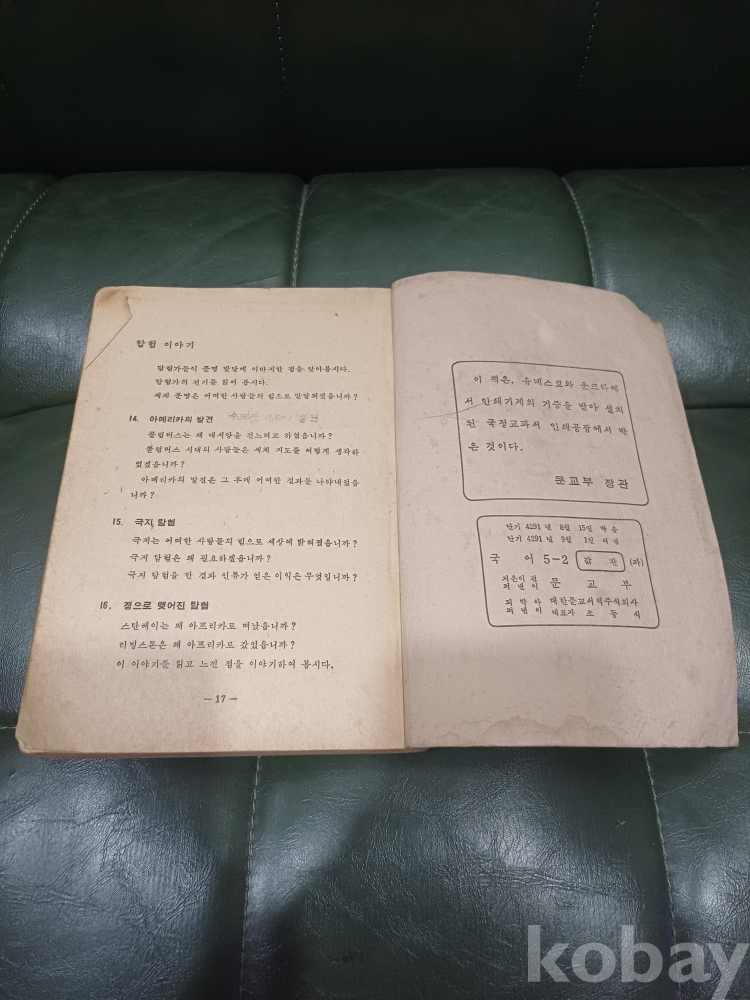 탐험 이야기
탐험가들이 문명 발달에 이바지한 점을 알아봅시다.
탐험가의 전기를 읽어 봅시다.
세계 문명은 어떠한 사람들의 힘으로 발달되었읍니까?
14. 아메리카의 발견
콜럼버스는 왜 대서양을 건느려고 하였읍니까?
콜럼버스 시대의 사람들은 세계 지도를 어떻게 생각하
였겠읍니까?
아메리카의 발견은 그 후에 어떠한 결과를 나타내었읍
니까?
15. 극지 탐험
극지는 어떠한 사람들의 힘으로 세상에 밝혀졌읍니까?
극지 탐험은 왜 필요하겠읍니까?
극지 탐험을 한 결과 인류가 얻은 이익은 무엇입니까?
16. 정으로 맺어진 탐험
스탄레이는 왜 아프리카로 떠났읍니까?
리빙스톤은 왜 아프리카로 갔었읍니까?
이 이야기를 읽고 느낀 점을 이야기하여 봅시다.
— 17 —
이 책은, 유네스코와 운크라에
서 인쇄기계의 기증을 받아 설치
된 국정교과서 인쇄공장에서 박
은 것이다.
문교부 장관
단기 4291 년 8월 15일 박음
단기 4291 년 9월 1일 펴냄
국 어 5-2 값 환
지은이 겸
펴낸이 문 교 부
대한문교서적주식회사
대표자 조 동 식
kobay